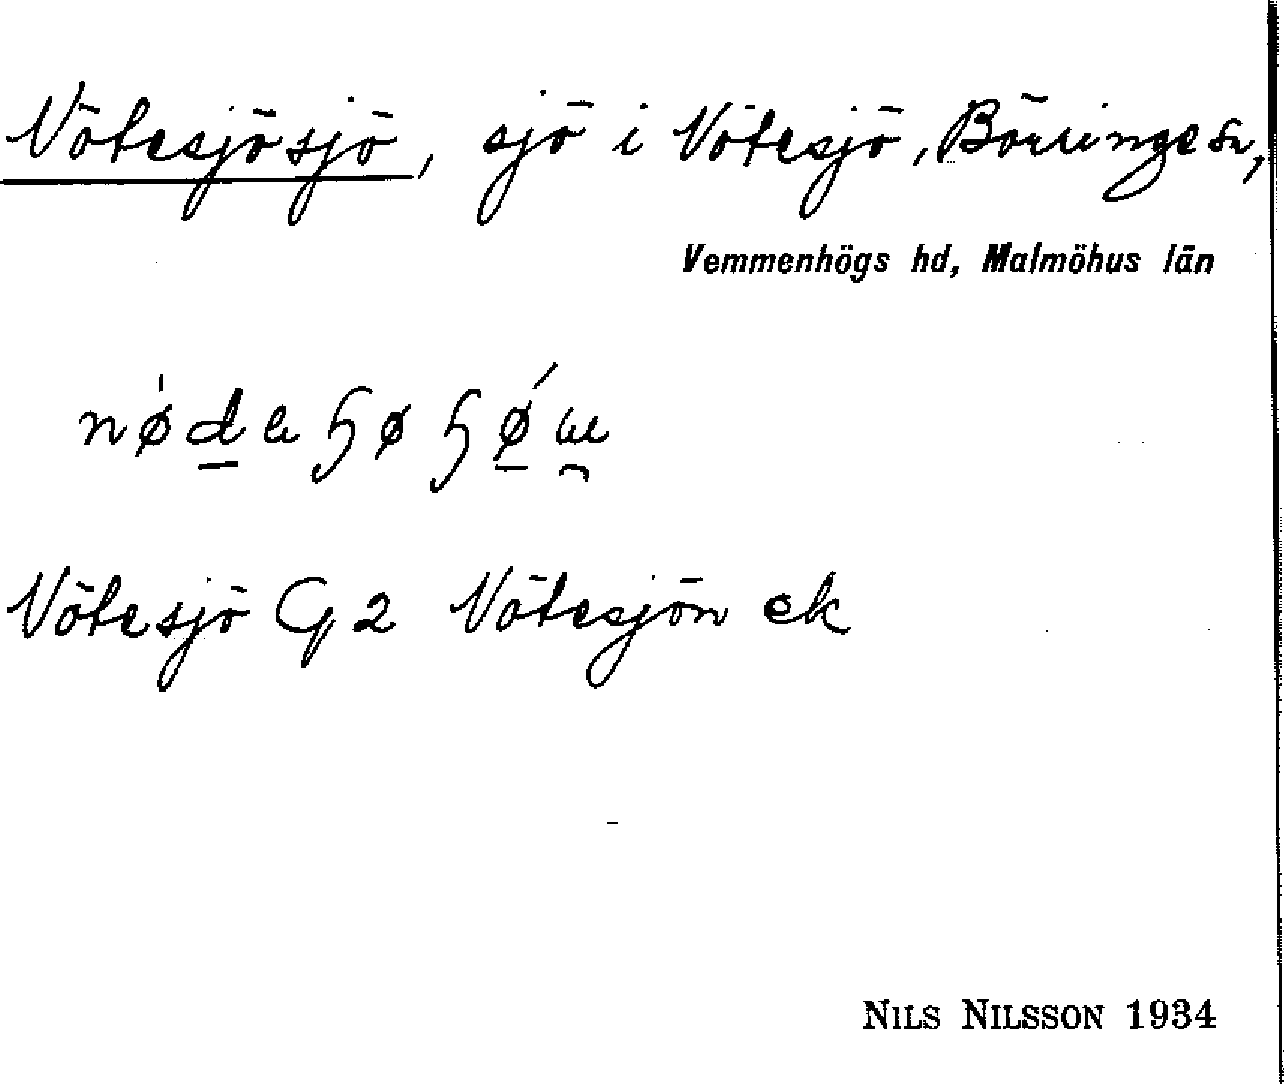 Nötesjösjö, sjö i Nötesjö, Börringe sn,
Vemmenhögs hd, Malmöhus län
Nötesjö G2 Nötesjön ek
NILS NILSSON 1934